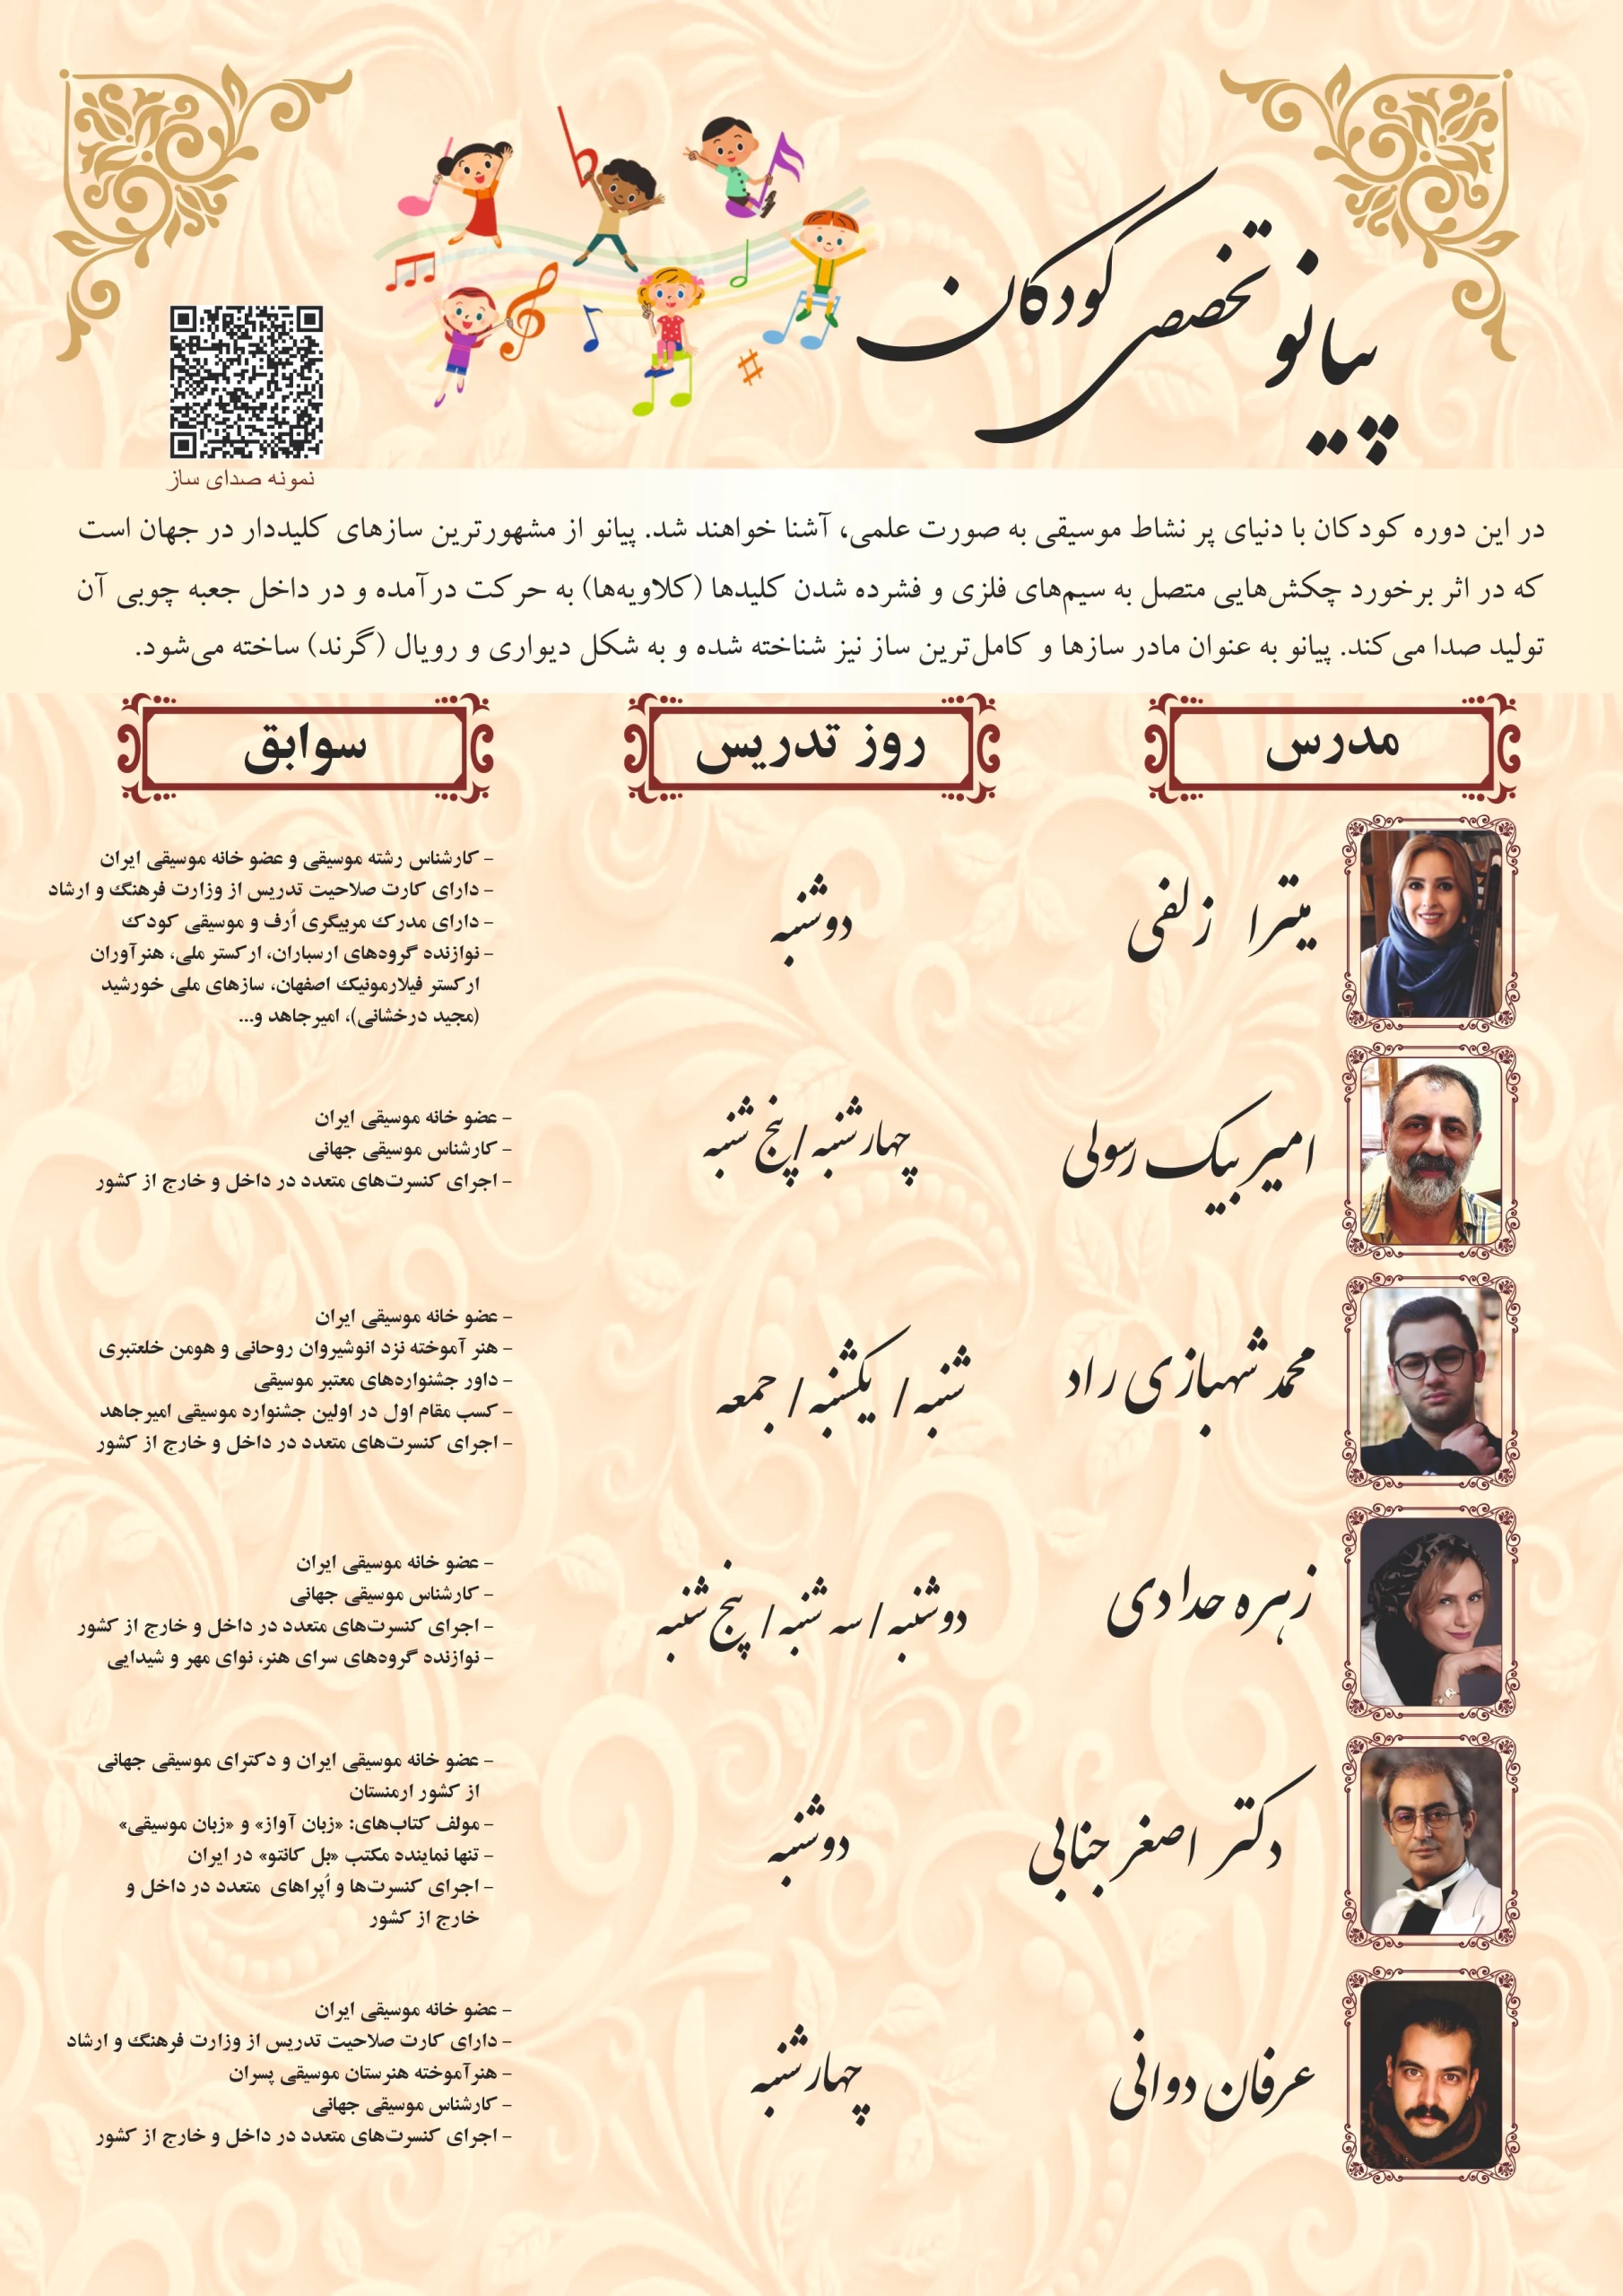 پیانو تخصصی کودکان
نمونه صدای ساز
در این دوره کودکان با دنیای پر نشاط موسیقی به صورت علمی، آشنا خواهند شد. پیانو از مشهورترین سازهای کلیددار در جهان است
که در اثر برخورد چکش‌هایی متصل به سیم‌های فلزی و فشرده شدن کلیدها (کلاویه‌ها) به حرکت درآمده و در داخل جعبه چوبی آن
تولید صدا می‌کند. پیانو به عنوان مادر سازها و کامل‌ترین ساز نیز شناخته شده و به شکل دیواری و رویال (گرند) ساخته می‌شود.
مدرس
روز تدریس
سوابق
میترا زلفی
دوشنبه
- کارشناس رشته موسیقی و عضو خانه موسیقی ایران
- دارای کارت صلاحیت تدریس از وزارت فرهنگ و ارشاد
- دارای مدرک مربیگری اُرف و موسیقی کودک
- نوازنده گروه‌های ارسباران، ارکستر ملی، هنرآوران
ارکستر فیلارمونیک اصفهان، سازهای ملی خورشید
(مجید درخشانی)، امیرجاهد و...
امیر بیک رسولی
چهارشنبه / پنج شنبه
- عضو خانه موسیقی ایران
- کارشناس موسیقی جهانی
- اجرای کنسرت‌های متعدد در داخل و خارج از کشور
محمد شهبازی راد
شنبه / یکشنبه / جمعه
- عضو خانه موسیقی ایران
- هنر آموخته نزد انوشیروان روحانی و هومن خلعتبری
- داور جشنواره‌های معتبر موسیقی
- کسب مقام اول در اولین جشنواره موسیقی امیرجاهد
- اجرای کنسرت‌های متعدد در داخل و خارج از کشور
زهره حدادی
دوشنبه / سه شنبه / پنج شنبه
- عضو خانه موسیقی ایران
- کارشناس موسیقی جهانی
- اجرای کنسرت‌های متعدد در داخل و خارج از کشور
- نوازنده گروه‌های سرای هنر، نوای مهر و شیدایی
دکتر اصغر جنابی
دوشنبه
- عضو خانه موسیقی ایران و دکترای موسیقی جهانی
از کشور ارمنستان
- مولف کتاب‌های: «زبان آواز» و «زبان موسیقی»
- تنها نماینده مکتب «بل کانتو» در ایران
- اجرای کنسرت‌ها و اُپراهای متعدد در داخل و
خارج از کشور
عرفان دوانی
چهارشنبه
- عضو خانه موسیقی ایران
- دارای کارت صلاحیت تدریس از وزارت فرهنگ و ارشاد
- هنرآموخته هنرستان موسیقی پسران
- کارشناس موسیقی جهانی
- اجرای کنسرت‌های متعدد در داخل و خارج از کشور